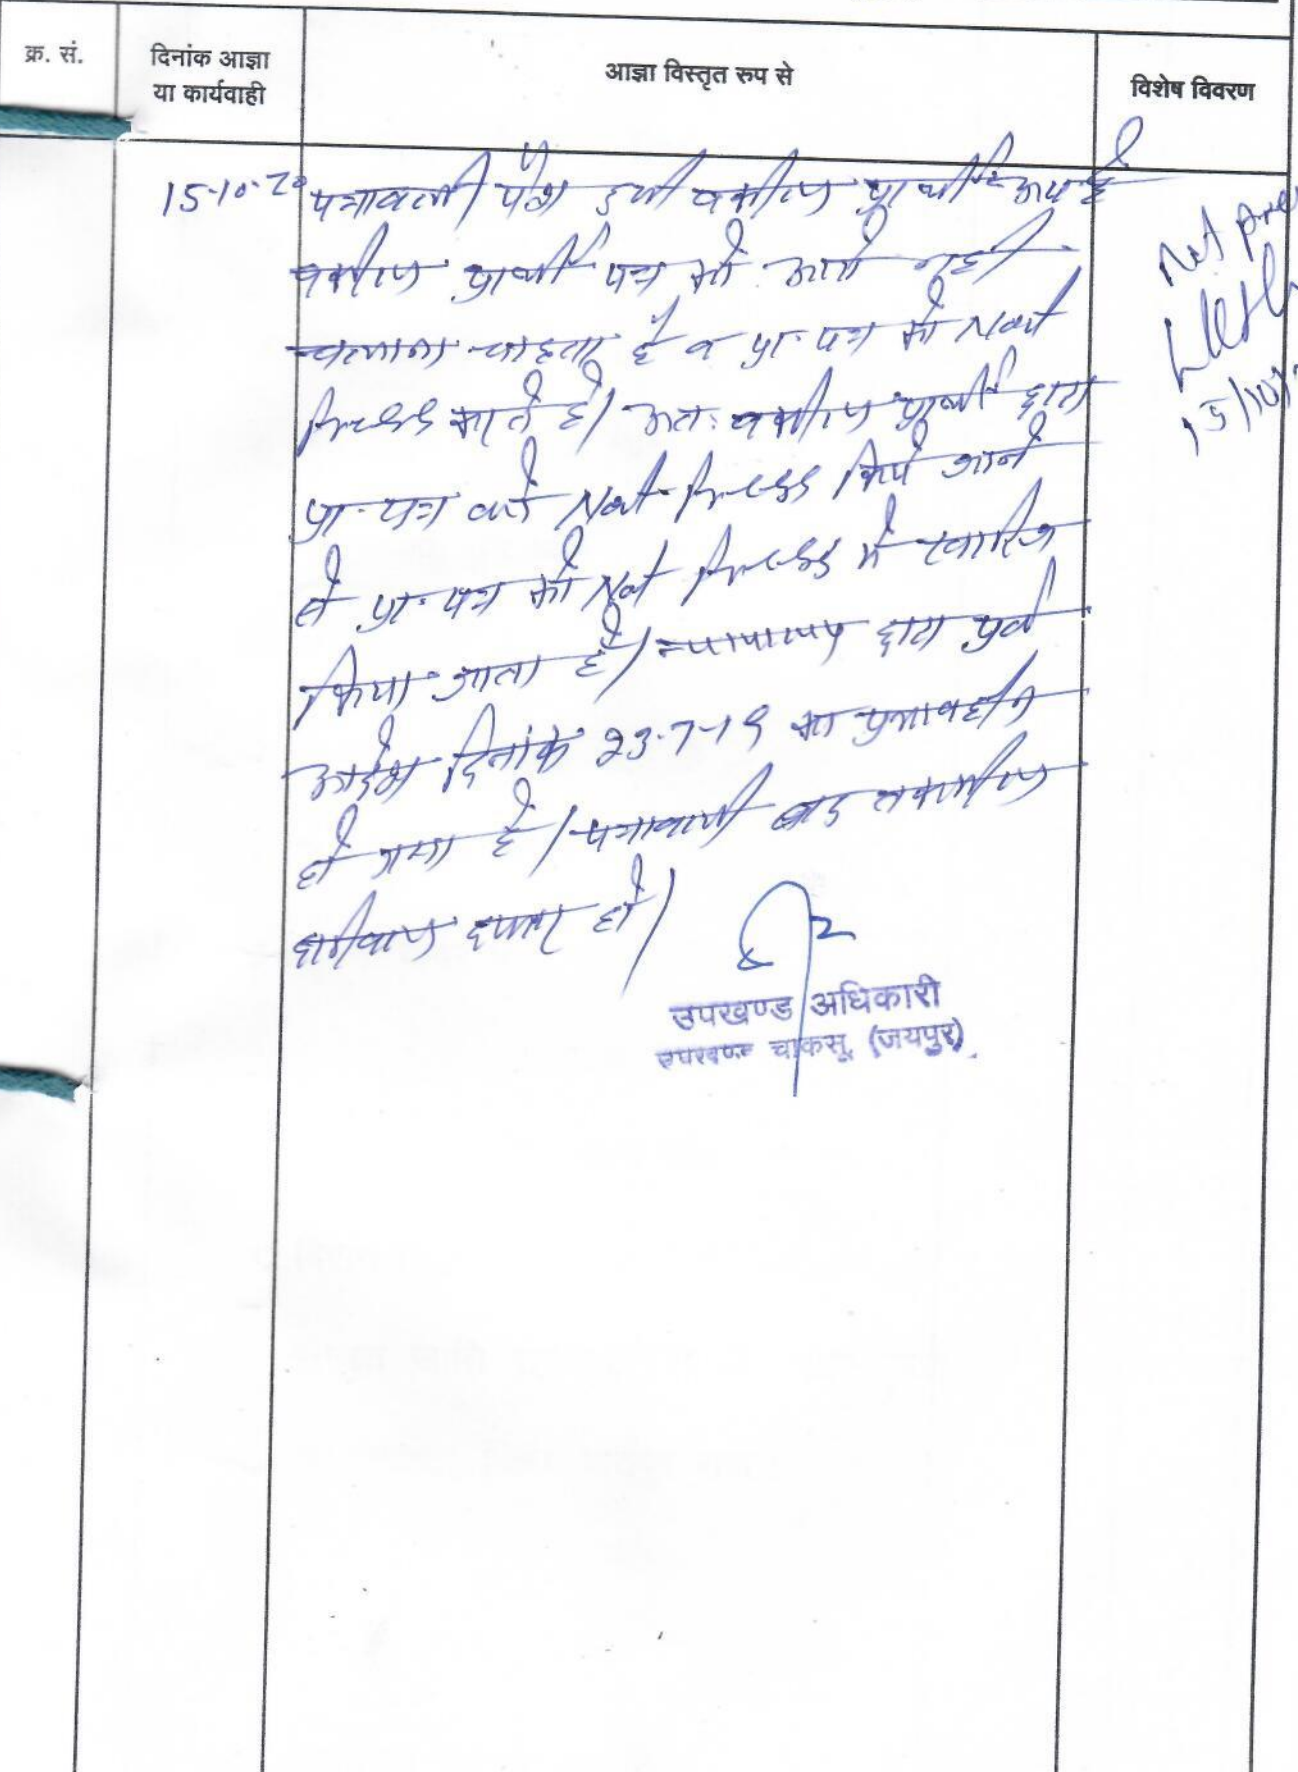 क्र. सं.
दिनांक आज्ञा
या कार्यवाही
आज्ञा विस्तृत रुप से
विशेष विवरण
15-10-20
पत्रावली पेश हुयी वकील प्रार्थी उप. है
वकील प्रार्थी पत्र को आगे नहीं
चलाना चाहता है व प्रा. पत्र को Not
Press करते है। अतः वकील प्रार्थी द्वारा
प्रा. पत्र को Not Press किये जाने
से प्रा. पत्र को Not Press में खारिज
किया जाता है। न्यायालय द्वारा पूर्व
आदेश दिनांक 23-7-19 का प्रभावहीन
हो गया है। पत्रावली बाद तकमील
दाखिल दफ्तर हो।
Not
15/10/
उपखण्ड अधिकारी
उपखण्ड चाकसू, (जयपुर)